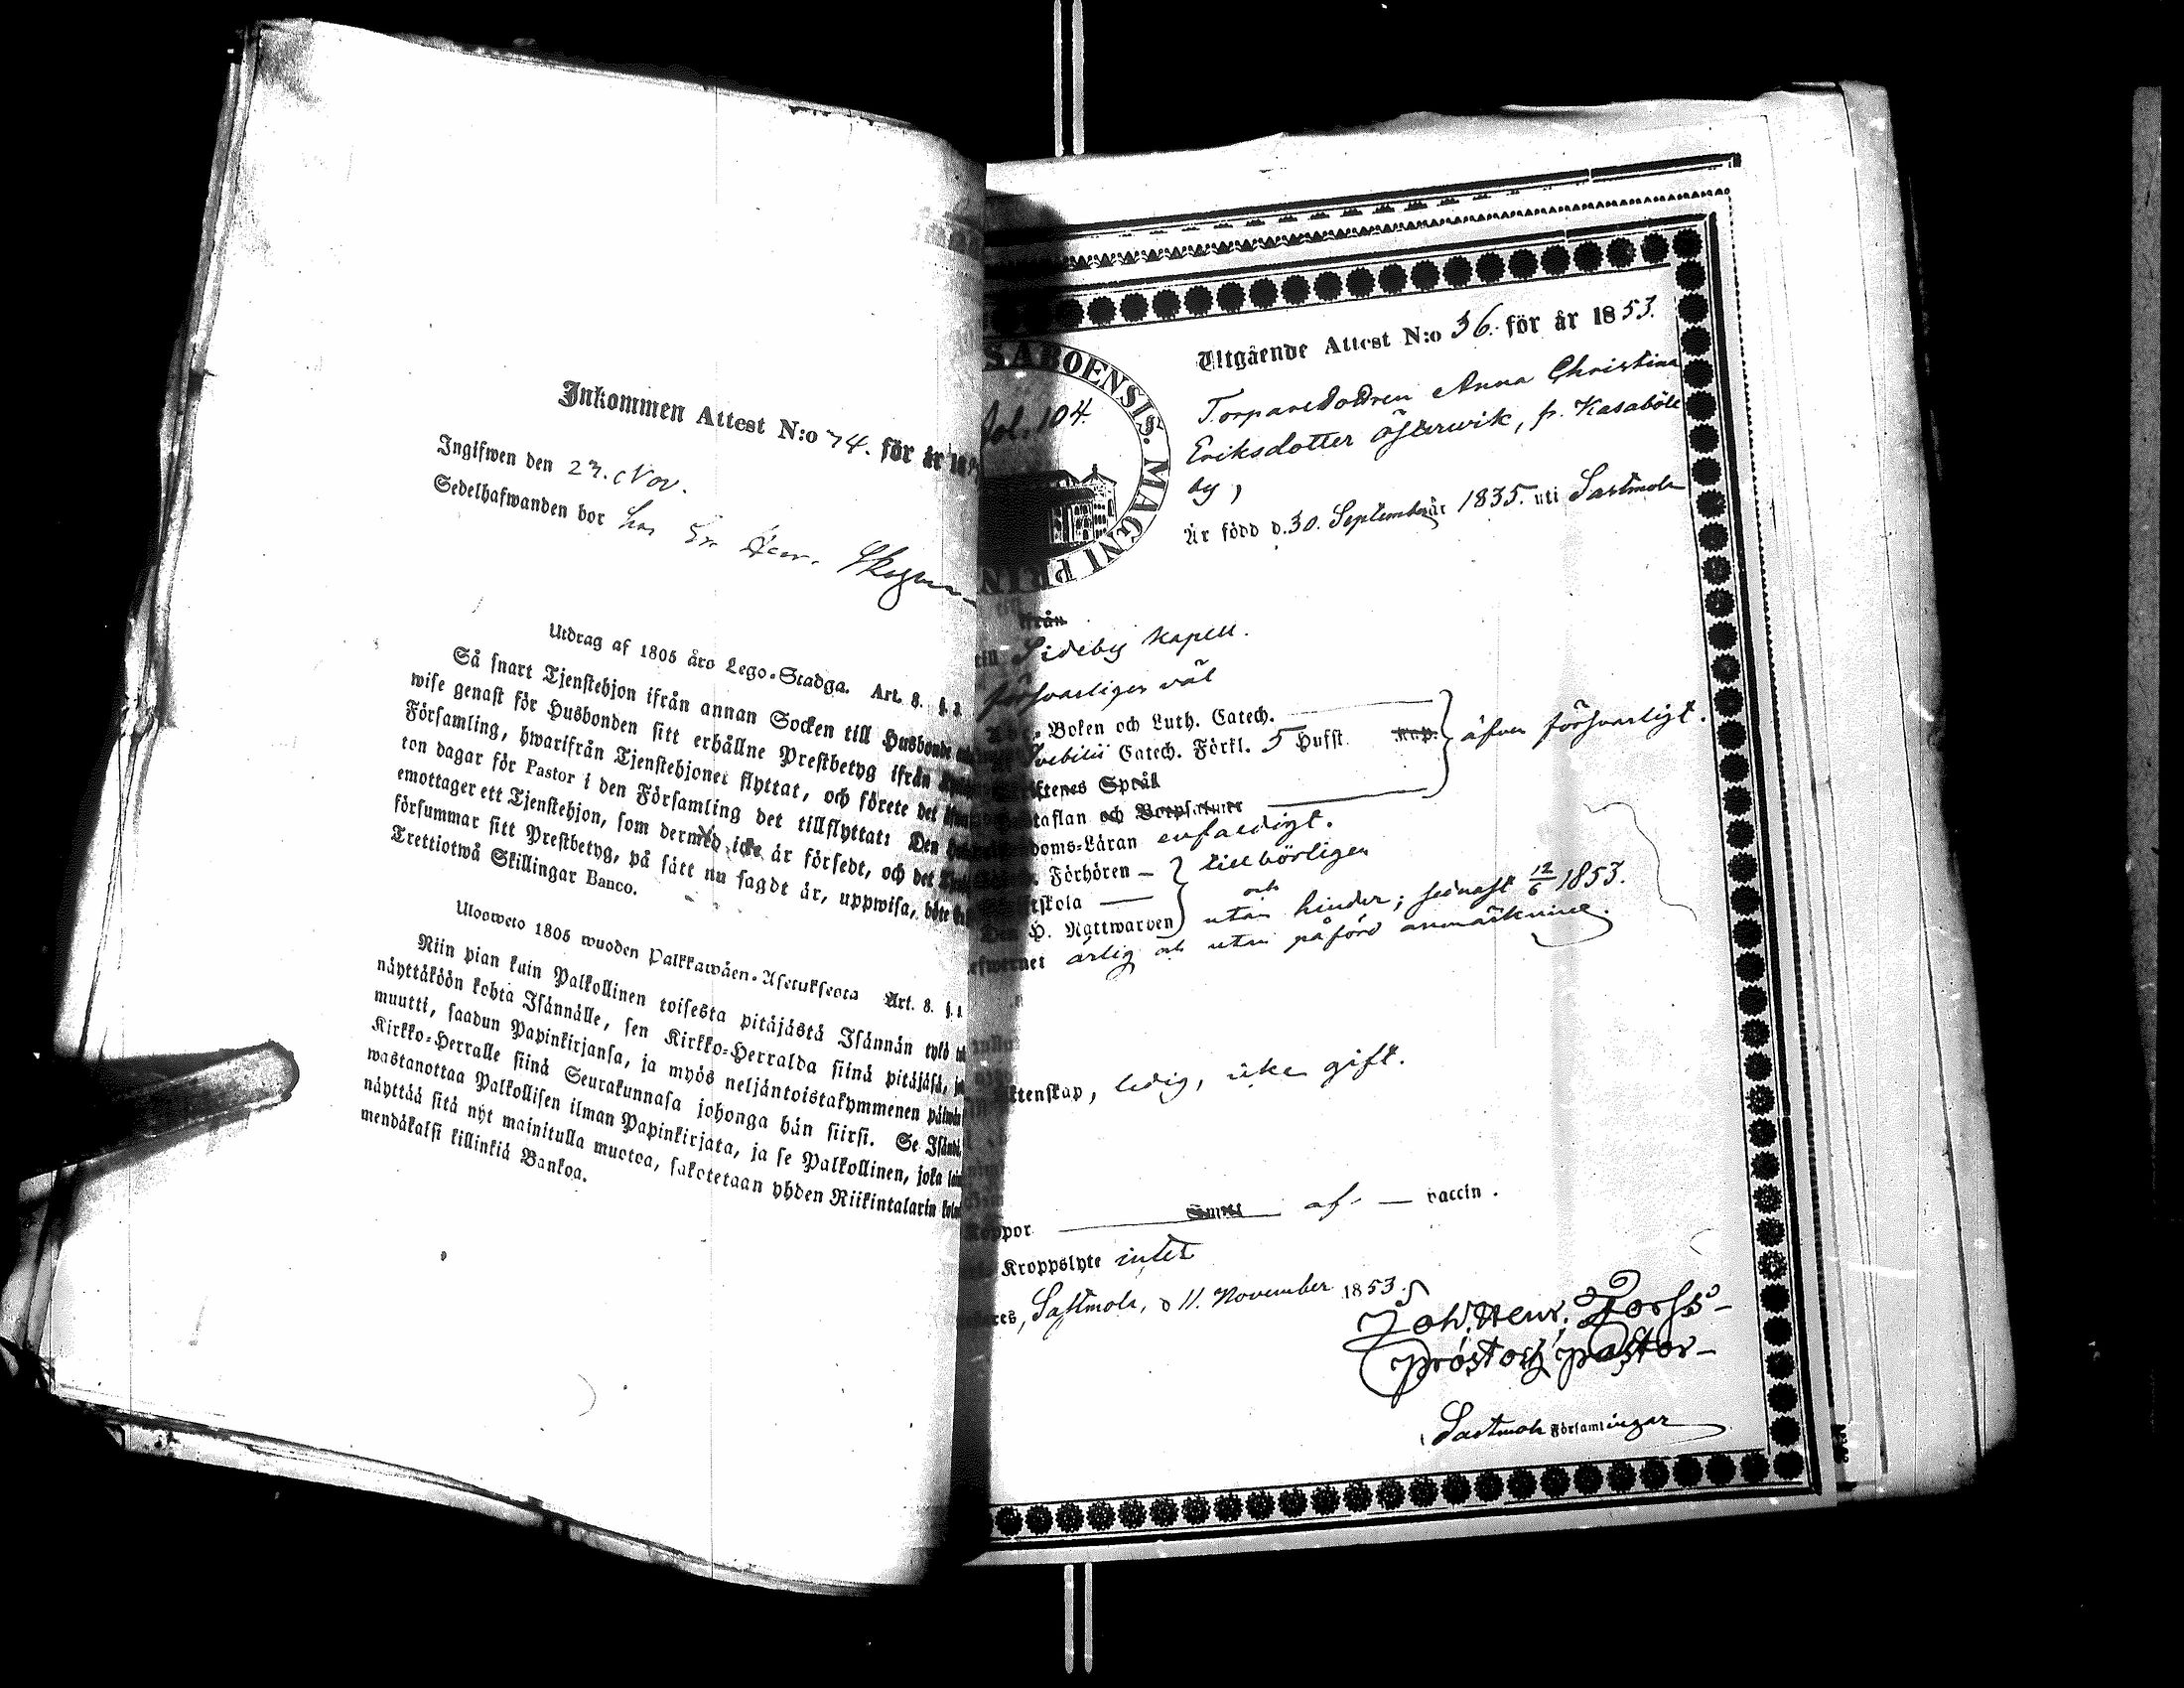 Inkommen Attest N:o 74. för år 18
Ingifwen den 23. Nov.
Sedelhafwanden bor hos
Utdrag af 1805 års Lego-Stadga. Art. 8. §.
Så snart Tjenstehjon ifrån annan Socken till Husbonde
wise genast för Husbonden sitt erhållne Prestbetyg ifrån
Församling, hwarifrån Tjenstehjonet flyttat, och förete det
ton dagar för Pastor i den Församling det tillflyttat: Den
emottager ett Tjenstehjon, som dermed icke är försedt, och det
försummar sitt Prestbetyg, på sätt nu sagdt är, uppwisa, böte
Trettiotwå Skillingar Banco.
Ulosweto 1805 wuoden Palkkawäen-Asetuksesta Art. 8. §.
Niin pian kuin Palkollinen toisesta pitäjästä Isännän tykö
näyttäköön kohta Isännälle, sen Kirkko-Herralda siinä pitäjäsä,
muutti, saadun Papinkirjansa, ja myös neljäntoistakymmenen päiwän
Kirkko-Herralle siinä Seurakunnasa johonga hän siirsi. Se Isändä,
wastanottaa Palkollisen ilman Papinkirjata, ja se Palkollinen, joka
näyttää sitä nyt mainitulla muotoa, sakotetaan yhden Riikintalarin
mendäkalsi killinkiä Bankoa.
SABOENSIS. MAGNI PRIN
fol. 104.
Utgående Attest N:o 36. för år 1853.
Torparedottren Anna Christina
Eriksdotter Österwik, fr. Kasaböle
by,
Är född d. 30. September år 1835. uti Sastmola
ifrån
till Sideby Kapell.
försvarligen väl
Boken och Luth. Catech.
Svebilii Catech. Förkl. 5 Hufst. Kap. äfven försvarligt.
Skriftenes Språk
Hustaflan och
doms-Läran enfaldigt.
Förhören – tillbörligen
skola — och
H. Nattwarden utan hinder; sednast 12/6 1853.
lefwernet ärlig och utan påförd anmärkning.
Ektenskap, ledig, icke gift.
Koppor af – vaccin.
Kroppslyte intet
Sastmola, d 11. November 1853.
Joh. Henr. Forss
Prost och Pastor
Sastmola Församlingar